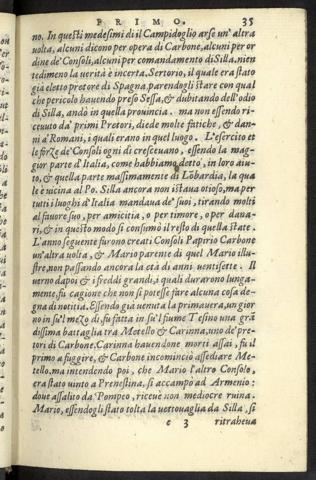 PRIMO. 35
no. In questi medesimi dì il Campidoglio arse un' altra
uolta, alcuni dicono per opera di Carbone, alcuni per or
dine de' Consoli, alcuni per commandamento di Silla. nien
tedimeno la uerità è incerta. Sertorio, il quale era stato
già eletto pretore di Spagna, parendogli stare con qual
che pericolo hauendo preso Sessa, & dubitando dell'odio
di Silla, andò in quella prouincia. ma non essendo ri-
ceuuto da' primi Pretori, diede molte fatiche, & dan-
ni a' Romani, i quali erano in quel luogo. L'esercito et
le forze de' Consoli ogni dì cresceuano, essendo la mag
gior parte d'Italia, come habbiamo detto, in loro aiu-
to, & quella parte massimamente di Lōbardia, la qua
le è uicina al Po. Silla ancora non istaua otioso, ma per
tutti i luoghi d'Italia mandaua de' suoi, tirando molti
al fauore suo, per amicitia, o per timore, o per dana-
ri, & in questo modo si consumò il resto di quella state.
L'anno seguente furono creati Consoli Papirio Carbone
un'altra uolta, & Mario parente di quel Mario illu-
stre, non passando ancora la età di anni uentisette. Il
uerno dapoi & i freddi grandi, i quali durarono lunga-
mente, fu cagione che non si potesse fare alcuna cosa de-
gna di notitia. Essendo già uenuta la primauera, un gior
no in su'l mezo dì, fu fatta in su'l fiume Tesino una grā
dissima battaglia tra Metello & Carinna, uno de' pre-
tori di Carbone. Carinna hauendone morti assai, fu il
primo a fuggire, & Carbone incominciò assediare Me-
tello. ma intendendo poi, che Mario l'altro Consolo,
era stato uinto a Prenestina, si accampò ad Armenio:
doue assalito da Pompeo, riceue non mediocre ruina.
Mario, essendogli stato tolta la uettouaglia da Silla, si
e 3 ritraheua